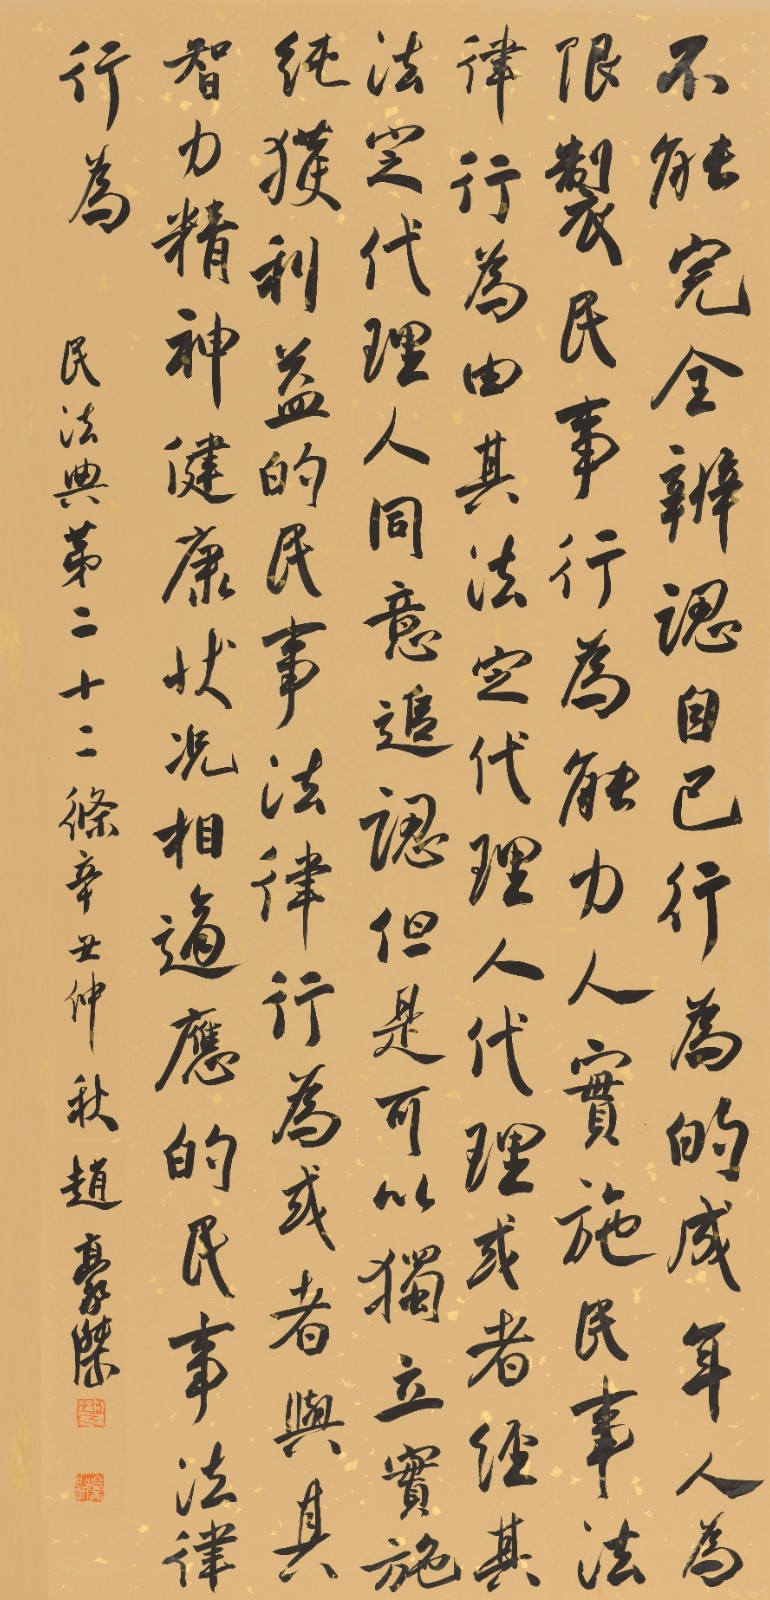 不能完全辨認自己行為的成年人為
限製民事行為能力人實施民事法
律行為由其法定代理人代理或者經其
法定代理人同意追認但是可以獨立實施
純獲利益的民事法律行為或者與其
智力精神健康狀況相適應的民事法律
行為
民法典第二十二條辛丑仲秋趙豪傑